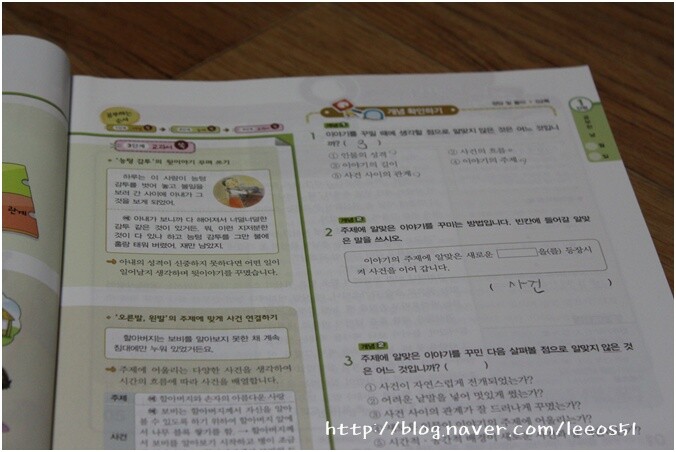 공부하는
순서
3단계 교과서
• '능텅 감투'의 뒷이야기 꾸며 쓰기
하루는 이 사람이 능텅
감투를 벗어 놓고 볼일을
보러 간 사이에 아내가 그
것을 보게 되었어.
예 아내가 보니까 다 해어져서 너덜너덜한
감투 같은 것이 있거든. 뭐, 이런 지저분한
것이 다 있나 하고 능텅 감투를 그만 불에
홀랑 태워 버렸어. 재만 남았지.
➡ 아내의 성격이 신중하지 못하다면 어떤 일이
일어날지 생각하며 뒷이야기를 꾸몄습니다.
• '오른발, 왼발'의 주제에 맞게 사건 연결하기
할아버지는 보비를 알아보지 못한 채 계속
침대에만 누워 있었거든요.
➡ 주제에 어울리는 다양한 사건을 생각하여
시간의 흐름에 따라 사건을 배열합니다.
주제 예 할아버지와 손자의 아름다운 사랑
사건 예 보비는 할아버지께서 자신을 알아
볼 수 있도록 하기 위하여 할아버지 앞에
서 나무 블록 쌓기를 함. → 할아버지께
서 보비를 알아보기 시작하고 병이 조금
개념 확인하기
개념
1 이야기를 꾸밀 때에 생각할 점으로 알맞지 않은 것은 어느 것입니
까? ( 3 )
① 인물의 성격 ② 사건의 흐름
③ 이야기의 길이 ④ 이야기의 주제
⑤ 사건 사이의 관계
개념
2 주제에 알맞은 이야기를 꾸미는 방법입니다. 빈칸에 들어갈 알맞
은 말을 쓰시오.
이야기의 주제에 알맞은 새로운 을(를) 등장시
켜 사건을 이어 갑니다.
( 사건 )
개념
3 주제에 알맞은 이야기를 꾸민 다음 살펴볼 점으로 알맞지 않은 것
은 어느 것입니까? ( )
① 사건이 자연스럽게 전개되었는가?
② 어려운 낱말을 넣어 멋있게 썼는가?
③ 사건 사이의 관계가 잘 드러나게 꾸몄는가?
이야기의 주제에 어울리는가?
http://blog.naver.com/leeos51